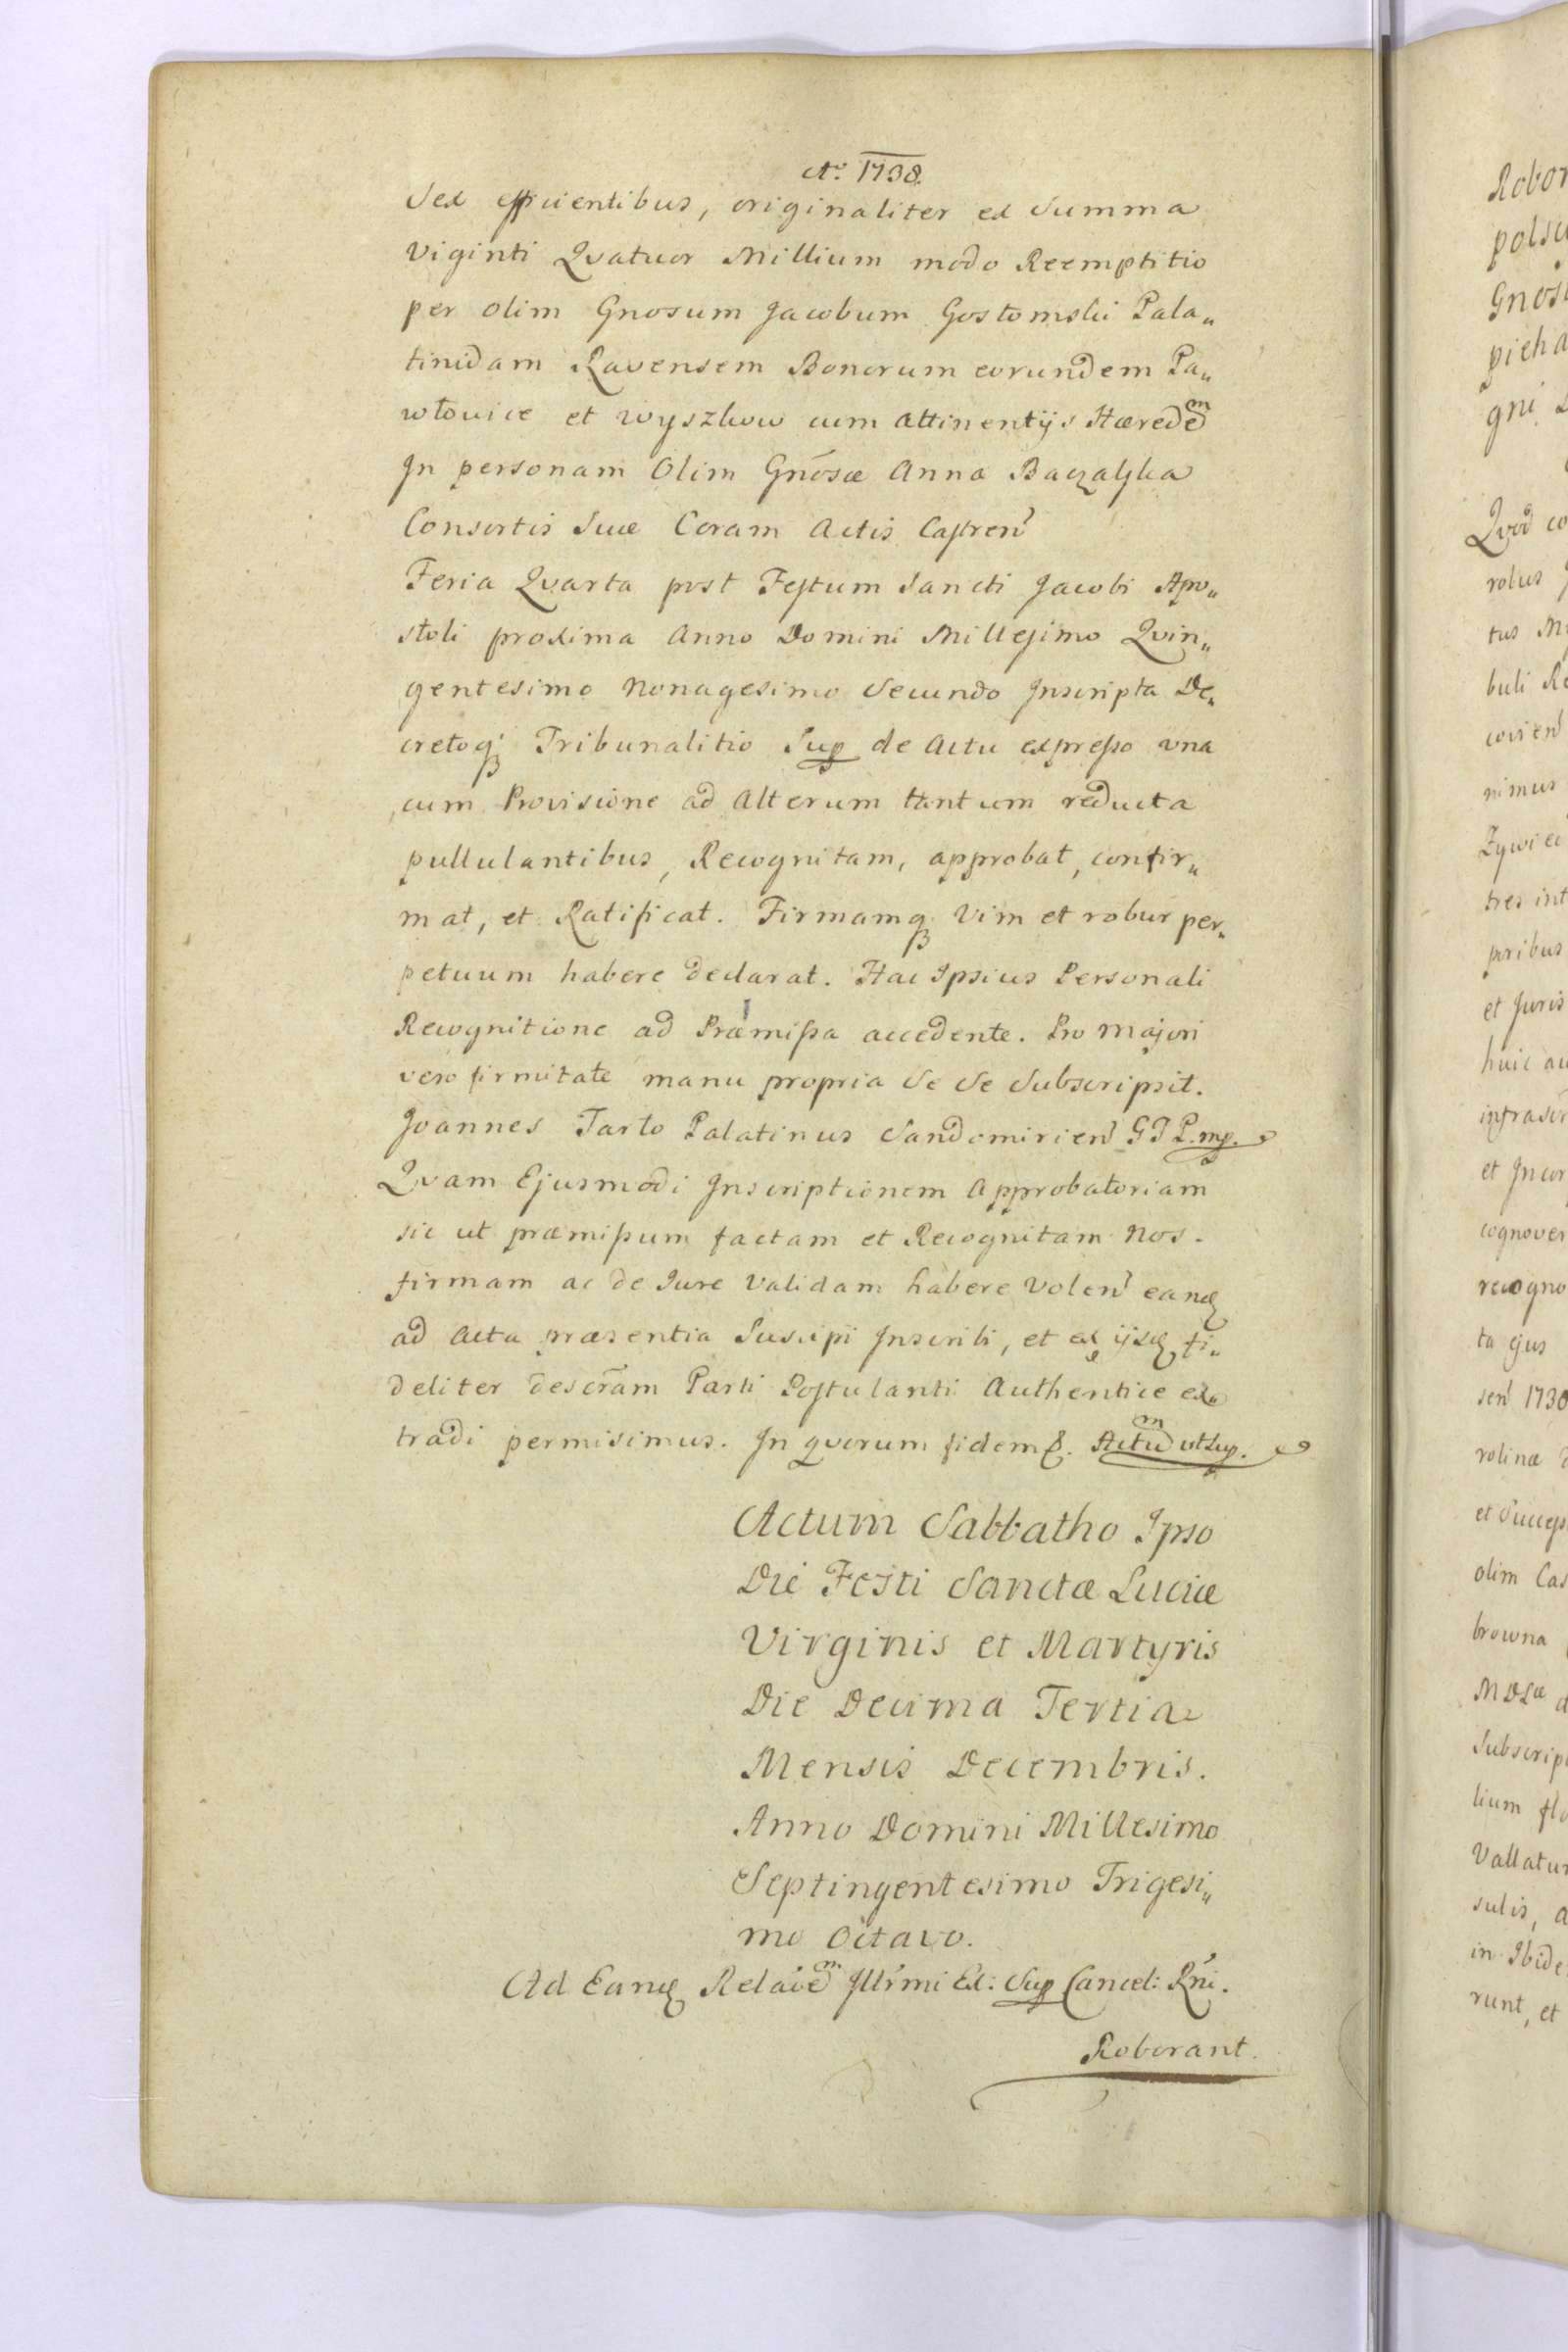 Ao. 1738.
Sex efficientibus, originaliter ex Summa
Viginti Qvatuor Millium modo Reemptitio
per olim Gnosum Jacobum Gostomski Pala„
tinidam Ravensem Bonorum eorundem Pa„
włowice et Wyszkow cum Attinentijs Hæredem
In personam Olim Gnosæ Anna
Consortis Suæ Coram Actis Castren
Feria Qvarta post Festum Sancti Jacobi Apo„
stoli proxima Anno Domini Millesimo Qvin„
gentesimo Nonagesimo Secundo Inscripta De„
cretoq Tribunalitio Sup de Actu expresso una
cum Provisione ad Alterum tantum reducta
pullulantibus, Recognitam, approbat, confir„
mat, et Ratificat. Firmamq Vim et robur per„
petuum habere declarat. Hac Ipsius Personali
Recognitione ad Præmissa accedente. Pro Majori
vero firmitate manu propria Se Se Subscripsit.
Joannes Tarło Palatinus Sandomirien G I P. mp.
Qvam Ejusmodi Inscriptionem Approbatoriam
sic ut præmissum factam et Recognitam Nos.
firmam ac de Jure Validam habere Volen eand
ad Acta præsentia Suscipi Inscribi, et ex ijsd fi„
deliter descram Parti Postulanti Authentice ex„
tradi permisimus. In qvorum fidem &. Actum ut sup.
Actum Sabbatho Ipso
Die Festi Sanctæ Luciæ
Virginis et Martyris
Die Decima Tertia
Mensis Decembris.
Anno Domini Millesimo
Septingentesimo Trigesi„
mo Octavo.
Ad Eand Relaoem Illrmi Ex: Sup Cancel: Rni.
Roborant.